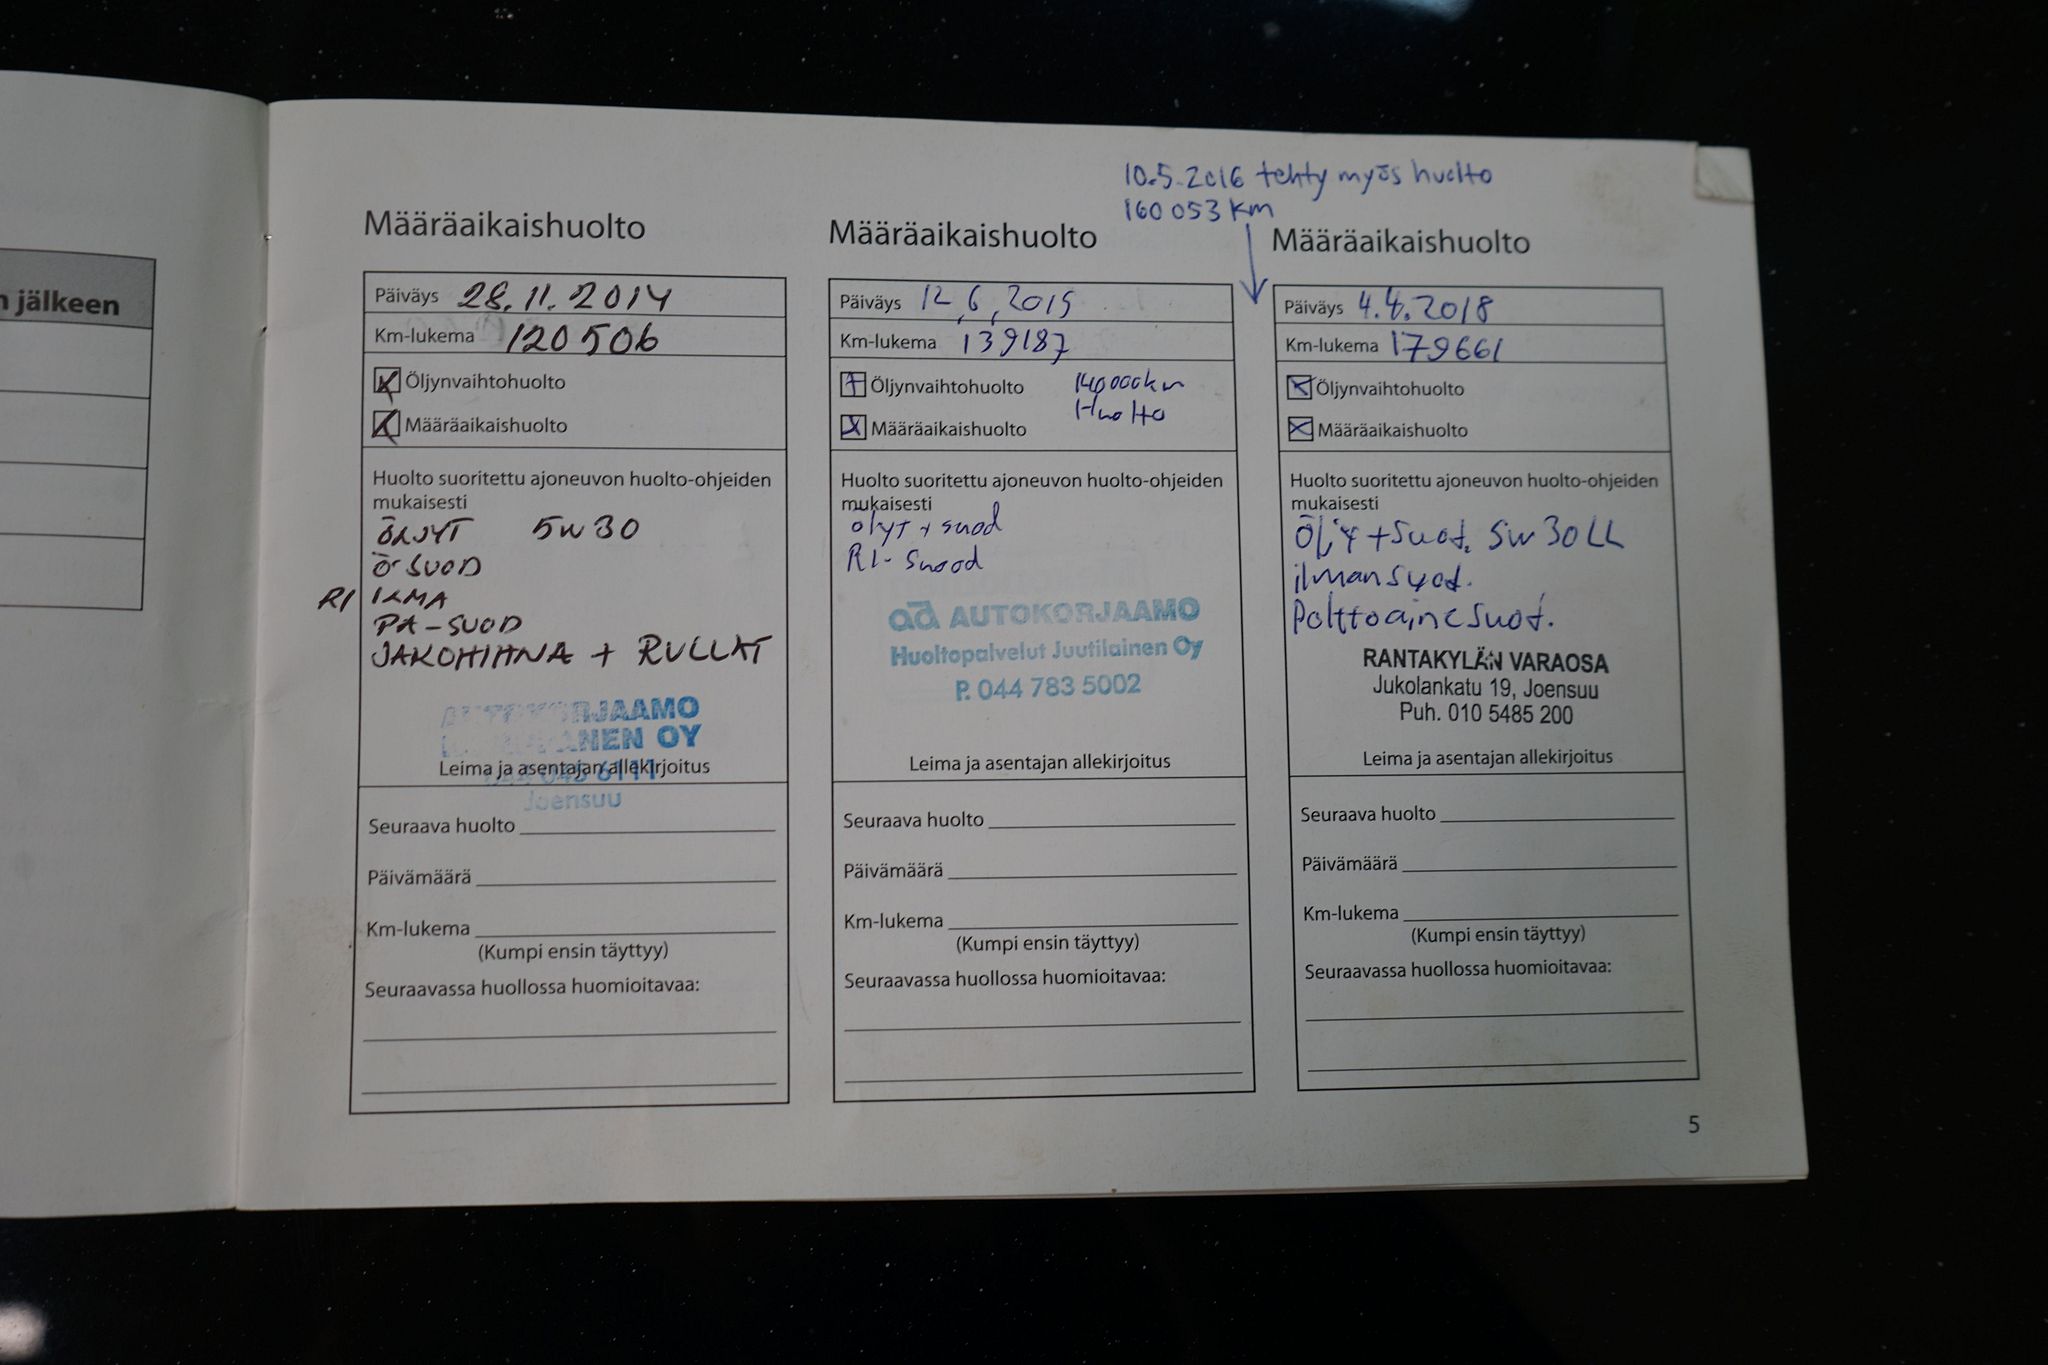 n jälkeen
10.5.2016 tehty myös huolto
160 053 km
Määräaikaishuolto
Päiväys 28.11.2014
Km-lukema 120 506
Öljynvaihtohuolto
Määräaikaishuolto
Huolto suoritettu ajoneuvon huolto-ohjeiden
mukaisesti
ÖLJYT 5W30
Ö-SUOD
RI ILMA
PA-SUOD
JAKOHIHNA + RULLAT
AUTOKORJAAMO
OY
6111
Leima ja asentajan allekirjoitus
Joensuu
Seuraava huolto
Päivämäärä
Km-lukema
(Kumpi ensin täyttyy)
Seuraavassa huollossa huomioitavaa:
Määräaikaishuolto
Päiväys 12,6,2015
Km-lukema 139187
Öljynvaihtohuolto 140000km
Huolto
Määräaikaishuolto
Huolto suoritettu ajoneuvon huolto-ohjeiden
mukaisesti
ölyt + suod
RI- Suood
ad AUTOKORJAAMO
Huoltopalvelut Juutilainen Oy
P. 044 783 5002
Leima ja asentajan allekirjoitus
Seuraava huolto
Päivämäärä
Km-lukema
(Kumpi ensin täyttyy)
Seuraavassa huollossa huomioitavaa:
Määräaikaishuolto
Päiväys 4.4.2018
Km-lukema 179661
Öljynvaihtohuolto
Määräaikaishuolto
Huolto suoritettu ajoneuvon huolto-ohjeiden
mukaisesti
Öljy + Suot. 5W30LL
ilmansuot.
Polttoainesuot.
RANTAKYLÄN VARAOSA
Jukolankatu 19, Joensuu
Puh. 010 5485 200
Leima ja asentajan allekirjoitus
Seuraava huolto
Päivämäärä
Km-lukema
(Kumpi ensin täyttyy)
Seuraavassa huollossa huomioitavaa:
5